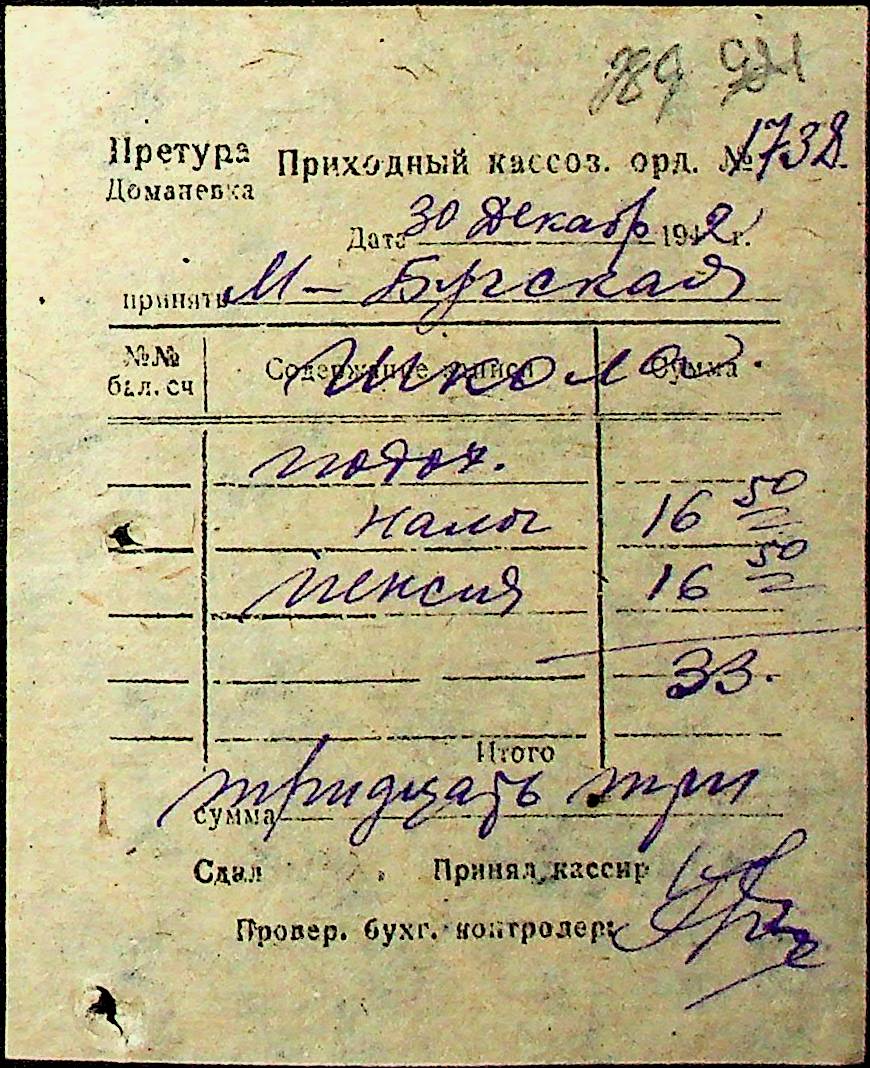 Претура Приходный кассоз. орд. № 1738.
Доманевка
Дата 30 Декабр 1942 г.
принять М- Бугская
№№ бал. сч Содержание записи Сумма
школа.
подох.
налог 16 50
пенсия 16 50
33.
Итого
сумма тридцать три
Сдал Принял кассир
Провер. бухг. контролер